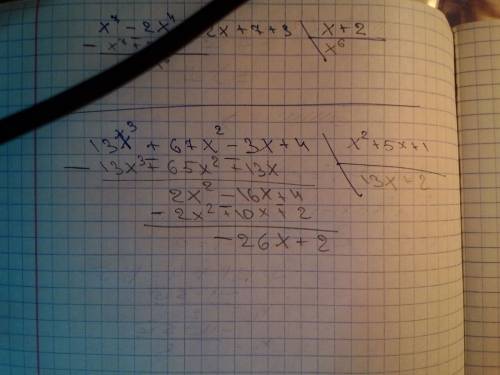 x⁷ - 2x⁴ 2x + 7 + 3 x + 2
x⁶
13x³ + 67x² - 3x + 4 x² + 5x + 1
- 13x³ + 65x² + 13x 13x + 2
2x² - 16x + 4
- 2x² + 10x + 2
- 26x + 2